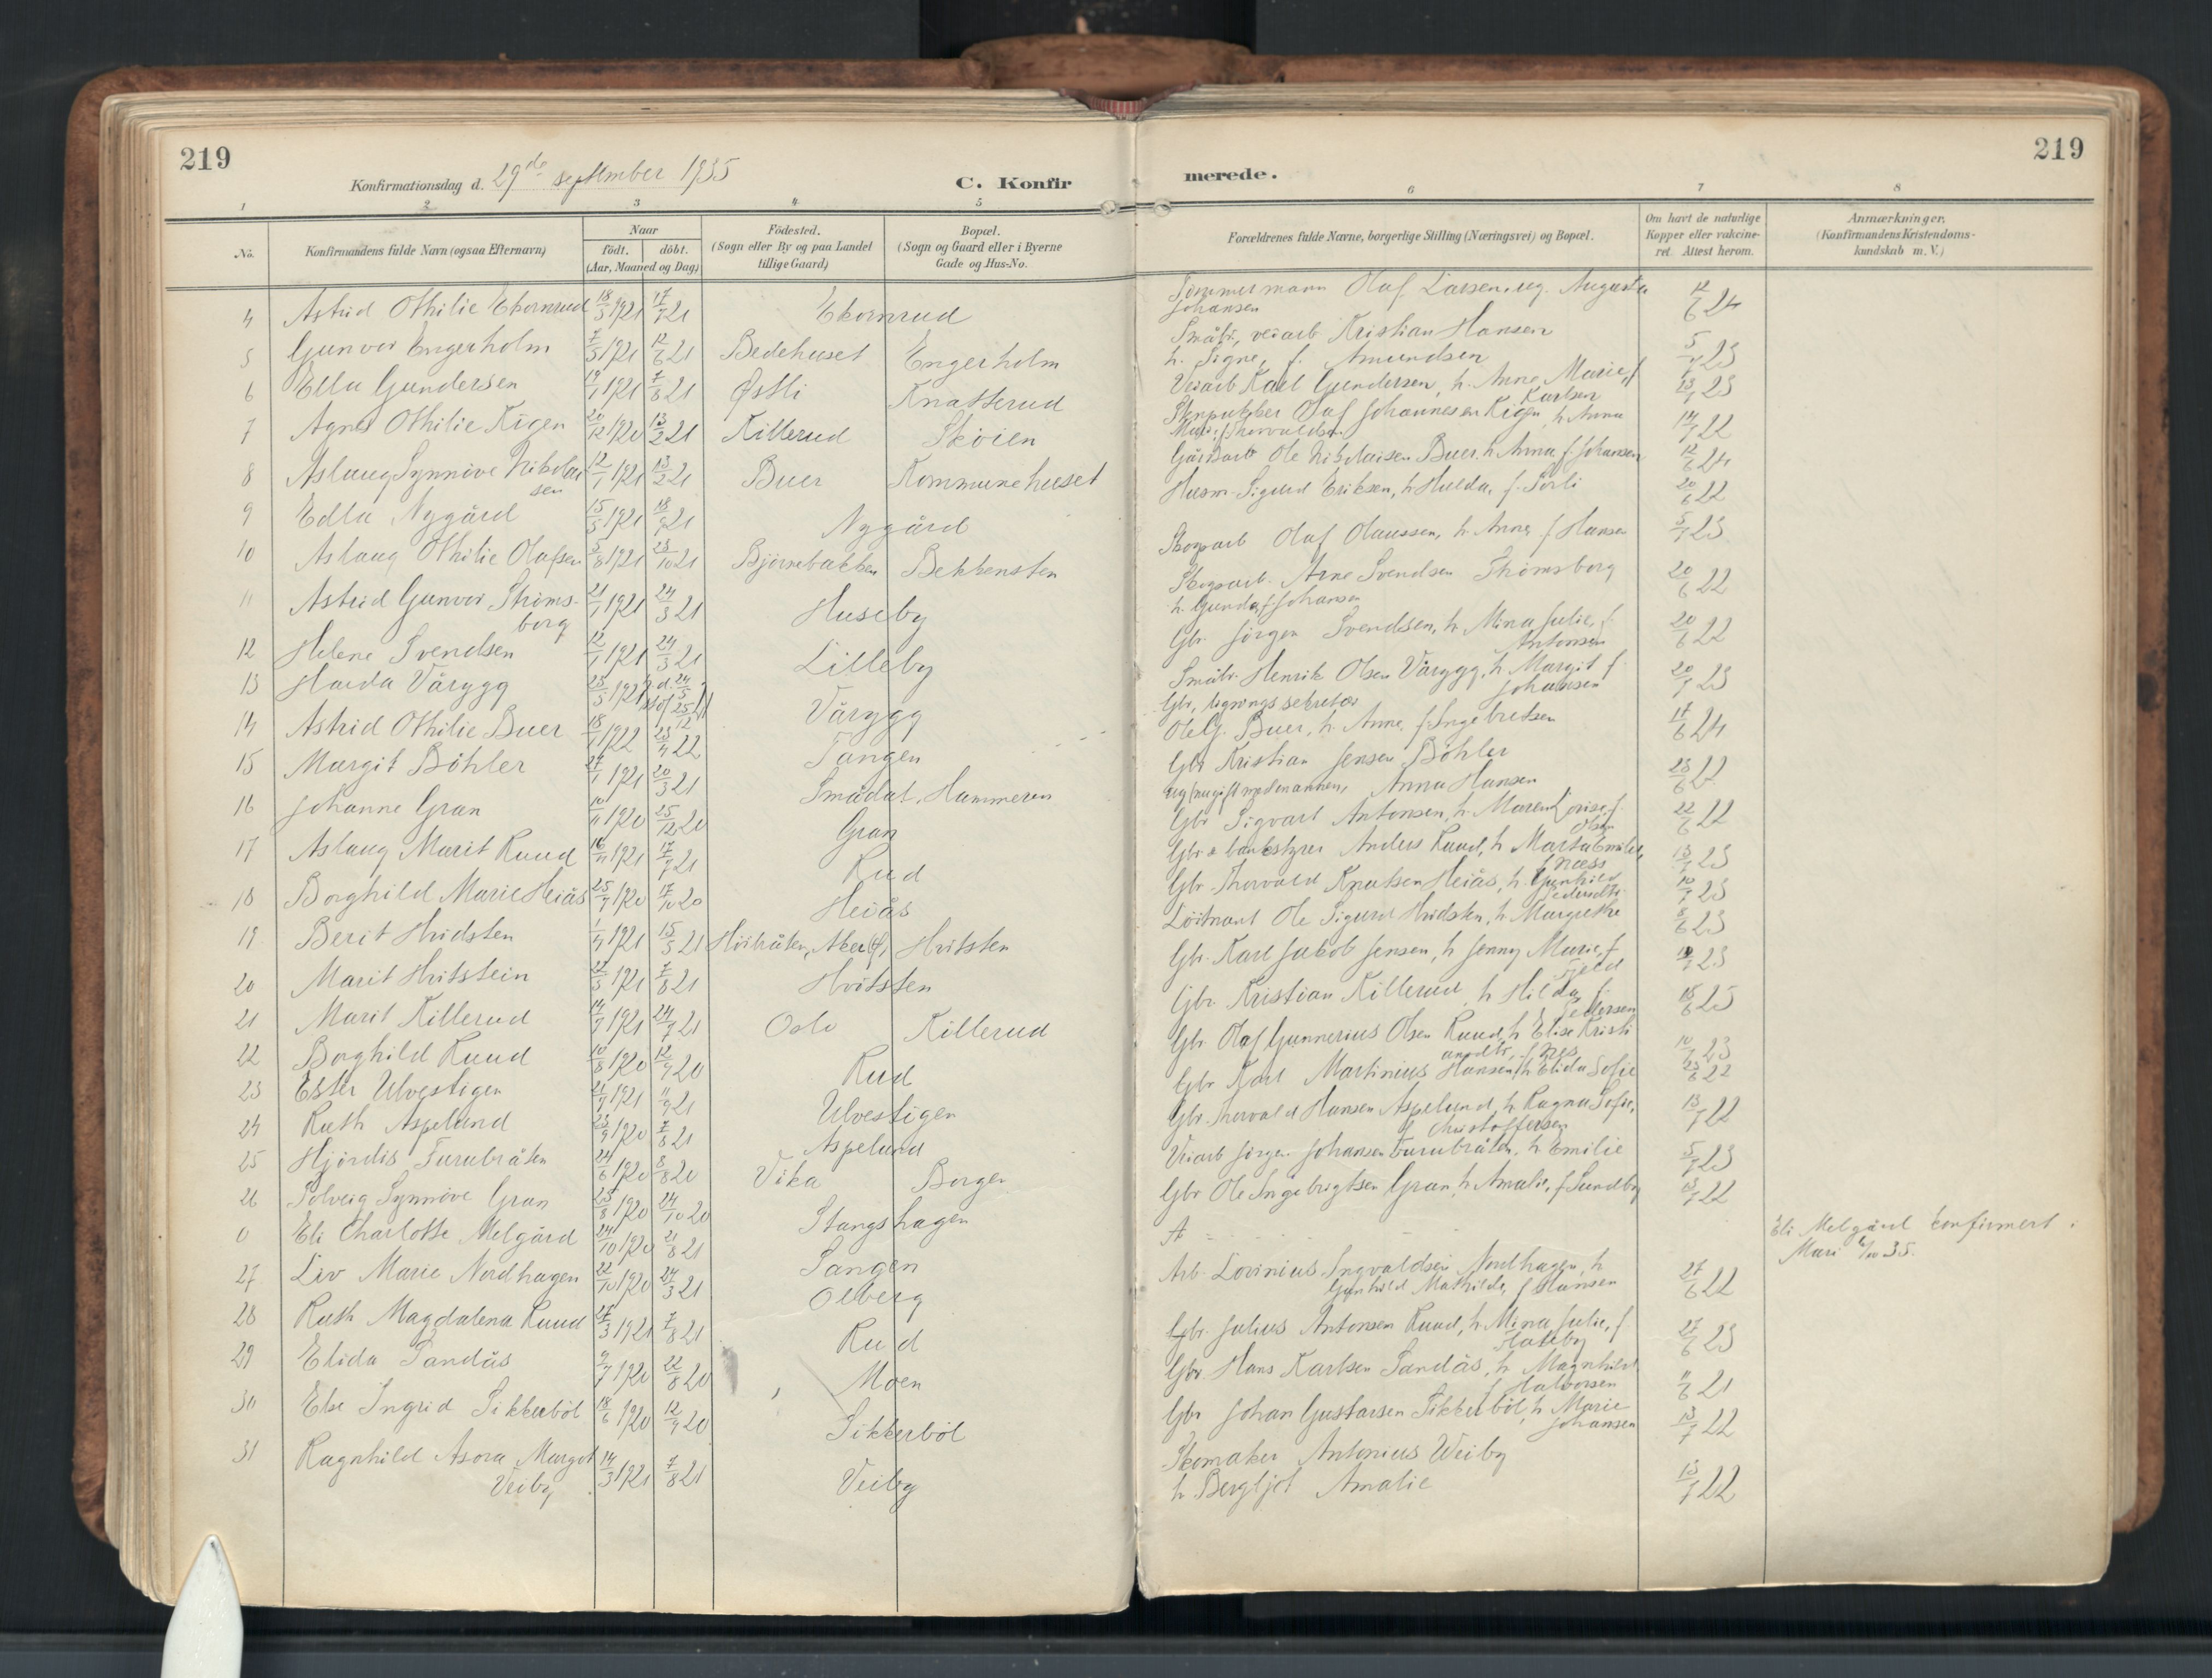 219
219
Konfirmationsdag d. 29de september 1935
C. Konfir
merede.
1 2 3 4 5 6 7 8
No.
Konfirmandens fulde Navn (ogsaa Efternavn)
Naar
födt. döbt.
(Aar, Maaned og Dag)
Födested.
(Sogn eller By og paa Landet
tillige Gaard)
Bopæl.
(Sogn og Gaard eller i Byerne
Gade og Hus-No.
Forældrenes fulde Navne, borgerlige Stilling (Næringsvei) og Bopæl.
Om havt de naturlige
Kopper eller vakcine-
ret. Attest herom.
Anmærkninger.
(Konfirmandens Kristendoms-
kundskab m. V.)
4 Astrid Othilie Ekornrud 18/3 1921 17/7 21 Ekornrud
Tømmermann Olaf Larsen, ug. Augusta 12/6 24
Johansen
5 Gunvor Engerholm 7/5 1921 12/6 21 Bedehuset Engerholm
Småbr, veiarb Kristian Hansen
h. Signe, f. Amundsen 5/7 23
6 Ella Gundersen 19/1 1921 7/8 21 Østli Knatterud
Veiarb Karl Gundersen, h. Anne Marie, f 13/7 23
Karlsen
7 Agnes Othilie Kigen 20/12 1920 13/2 21 Killerud Skøien
Olaf Johannesen Kigen, h Anna 14/7 22
Marie f. Thorvaldsen
8 Aslaug Synnøve Nikolai 12/1 1921 13/2 21 Buer Kommunehuset
sen
Gårdsarb Ole Nikolaisen Buer, h Anna f. Johansen 12/6 24
9 Edla Nygård 15/5 1921 18/9 21 Nygård
Husm. Sigurd Eriksen, h Hulda, f. Sørli 20/6 22
10 Aslaug Othilie Olafsen 5/8 1921 23/10 21 Bjørnebakken Bekkensten
Skogsarb Olaf Olaussen, h. Anna f Hansen 5/7 23
11 Astrid Gunvor Strøms- 21/1 1921 24/3 21 Huseby
borg
Skogsarb. Arne Svendsen Strømsborg 20/6 22
h. Gunda, f. Johansen
12 Helene Svendsen 12/1 1921 24/3 21 Lilleby
Gbr. Jørgen Svendsen, h. Mina Julie, f. 20/6 22
Antonsen
13 Harda Vårygg 25/3 1921 Vårygg
Småbr. Henrik Olsen Vårygg, h. Margit f. 20/7 23
Johansen
14 Astrid Othilie Buer 18/1 1922 23/4 22 Tangen
Gbr, ligningssekretær
Ole G. Buer, h. Anne, f. Ingebretsen 17/6 24
15 Margit Bøhler 27/1 1921 20/3 21 Smådal, Hammeren
Gbr Kristian Jensen Bøhler
ug (nu gift med en annen, Anna Hansen 23/6 22
16 Johanne Gran 10/11 1920 25/12 20 Gran
Gbr Sigvart Antonsen, h. Maren Lovise, f. 22/6 22
Olsen
17 Aslaug Marit Ruud 16/4 1921 17/7 21 Rud
Gbr & bankstyrer Anders Ruud, h Marta Emilie, 13/7 23
f. Næss
18 Borghild Marie Heiås 25/7 1920 17/10 20 Heiås
Gbr. Thorvald Knutsen Heiås, h. Gunhild 10/7 23
Pedersdtr.
19 Berit Hvidsten 1/4 1921 15/5 21 Høibråten, Aker Hvitsten
Løitnant Ole Sigurd Hvidsten, h. Margrethe 8/6 23
20 Marit Hvitstein 22/5 1921 7/8 21 Hvitsten
Gbr. Karl Jakob Jensen, h Jenny Marie, f 23
21 Marit Killerud 14/9 1921 24/7 21 Oslo Killerud
Gbr. Kristian Killerud, h Hilda, f. 18/6 25
Pettersen
22 Borghild Ruud 10/8 1920 12/9 20 Rud
Gbr. Olaf Gunnerius Olsen Ruud, h Elise Kristi 10/7 23
ansdtr, f. Næs
23 Ester Ulvestigen 21/7 1921 11/9 21 Ulvestigen
Gbr Karl Martinius Hansen, h Elida Sofie 25/6 22
24 Ruth Aspelund 23/9 1920 7/8 21 Aspelund
Gbr. Thorvald Hansen Aspelund, h. Ragna Sofie, 13/7 22
f. Christoffersen
25 Hjørdis Furubråten 24/6 1920 8/8 20 Vika Borgen
Veiarb Jørgen Johansen Furubråten, h Emilie 5/7 23
26 Solveig Synnøve Gran 25/8 1920 24/10 20 Stangshagen
Gbr Ole Ingebrigtsen Gran, h Amalie, f Sundby 13/7 22
0 Eli Charlotte Melgård 24/10 1920 21/8 21 Tangen
Eli Melgård konfirmert i
Mari 6/10 35.
27 Liv Marie Nordhagen 22/10 1920 27/3 21 Olberg
Arb. Lovinius Ingvaldsen Nordhagen, h 27/6 22
Gunhild Mathilde, f Hansen
28 Ruth Magdalena Ruud 17/3 1921 7/8 21 Rud
Gbr. Julius Antonsen Ruud, h. Mina Julie, f. 27/6 23
29 Elida Sandås 9/7 1920 22/8 20 Moen
Gbr. Hans Karlsen Sandås, h Magnhild 11/6 21
f Halvorsen
30 Else Ingrid Sikkerbøl 18/6 1920 12/9 20 Sikkerbøl
Gbr Johan Gustavsen Sikkerbøl, h Marie 13/7 22
Johansen
31 Ragnhild Asora Margot 14/3 1921 7/8 21 Veiby
Veiby
Skomaker Antonius Weiby
h. Bergljot Amalie 13/7 22